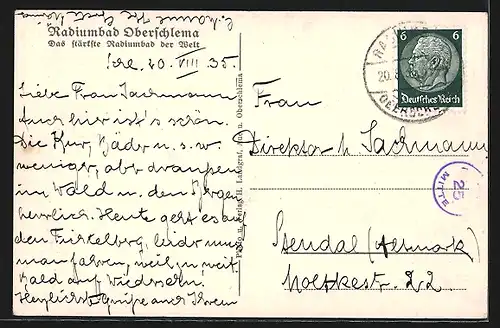 Radiumbad Oberschlema
Das stärkste Radiumbad der Welt
Schl. 20. VIII 35.
Liebe Frau Sachmann
Auch hier ist's schön.
Die Kur, Bäder u. s. w.
weniger, aber draußen
im Wald u. den Bergen
herrlich. Heute geht es auf
den Fichtelberg, leider muss
man fahren, weil zu weit
Bald auf Wiedersehn.
Herzlichste Grüße auch Ihrem
Frau
Direktor Sachmann
Stendal (Altmark)
Moltkest. 22.
6 6
Deutsches Reich
20. 8.
OBERSCHL
25
MITTE
Photo u. Verlag H. Landgraf, Oberschlema